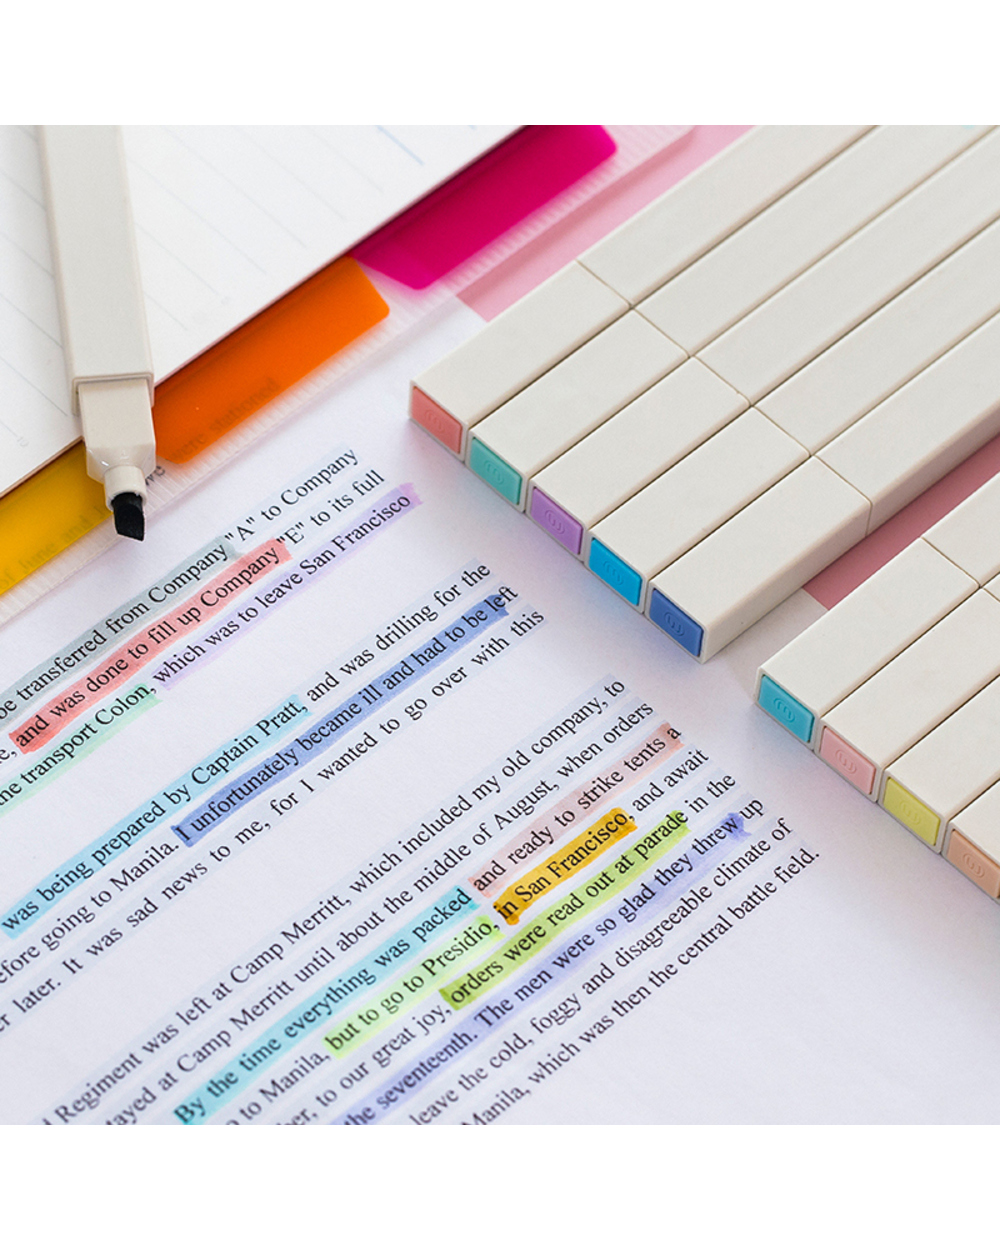 be transferred from Company "A" to Company
and was done to fill up Company "E" to its full
the transport Colon, which was to leave San Francisco
was being prepared by Captain Pratt, and was drilling for the
before going to Manila. I unfortunately became ill and had to be left
later. It was sad news to me, for I wanted to go over with this
Regiment was left at Camp Merritt, which included my old company, to
at Camp Merritt until about the middle of August, when orders
By the time everything was packed and ready to strike tents a
to Manila, but to go to Presidio, in San Francisco, and await
to our great joy, orders were read out at parade in the
the seventeenth. The men were so glad they threw up
leave the cold, foggy and disagreeable climate of
Manila, which was then the central battle field.